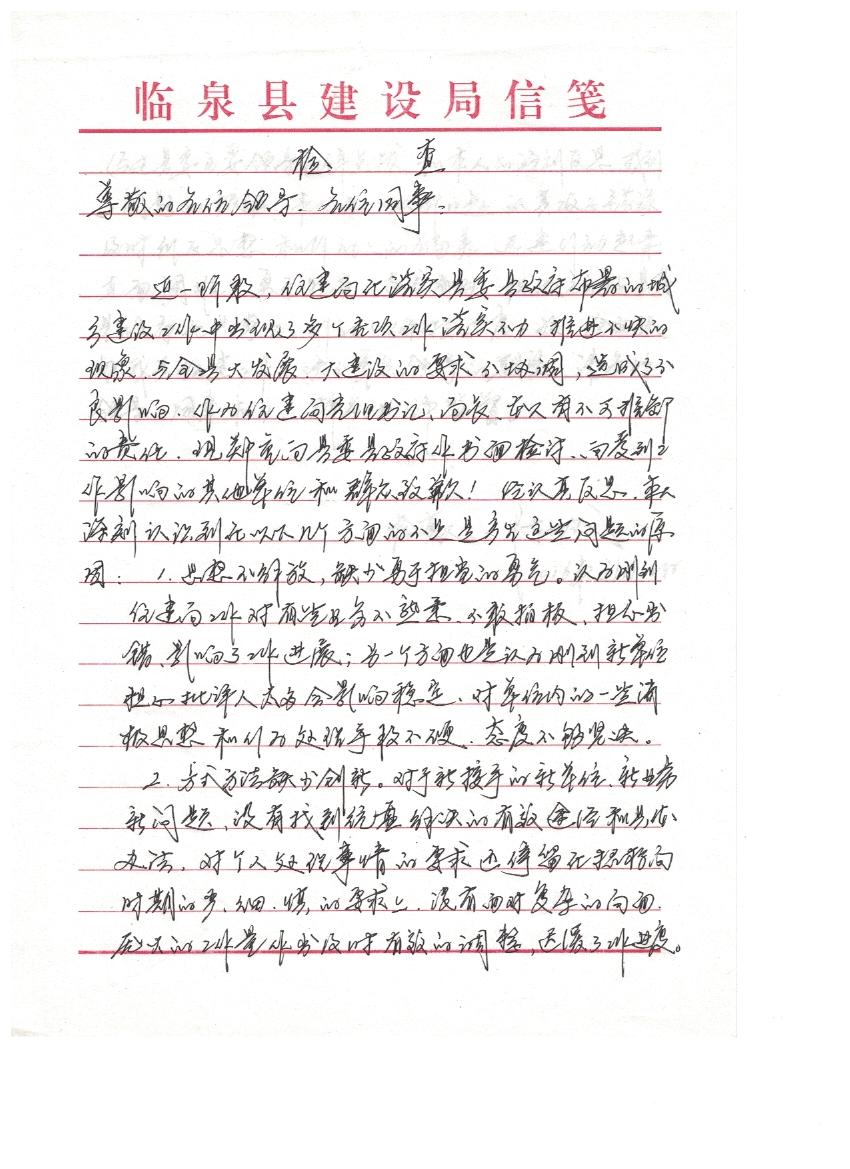 临泉县建设局信笺
检查
尊敬的各位领导、各位同事:
近一阶段,住建局在落实县委县政府布署的城
乡建设工作中出现了多个专项工作落实不力、推进不快的
现象,与全县大发展、大建设的要求不协调,造成了不
良影响。作为住建局党组书记、局长,本人有不可推卸
的责任。现郑重向县委县政府作书面检讨、向受到工
作影响的其他单位和群众致歉!经认真反思,本人
深刻认识到在以下几个方面的不足是产生这些问题的原
因:1、思想不解放,缺少勇于担当的勇气。认为刚到
住建局工作对有些业务不熟悉、不敢拍板,担心出
错、影响了工作进展;另一个方面也是认为刚到新单位
担心批评人太多会影响稳定、对单位内的一些消
极思想和行为处理手段不硬、态度不够坚决。
2、方式方法缺少创新。对于新接手的新单位、新业务
新问题,没有找到统筹解决的有效途径和具体
办法,对个人处理事情的要求还停留在招商局
时期的严、细、慎的要求上,没有面对复杂的局面、
庞大的工作量作出及时有效的调整,迟缓了工作进度。